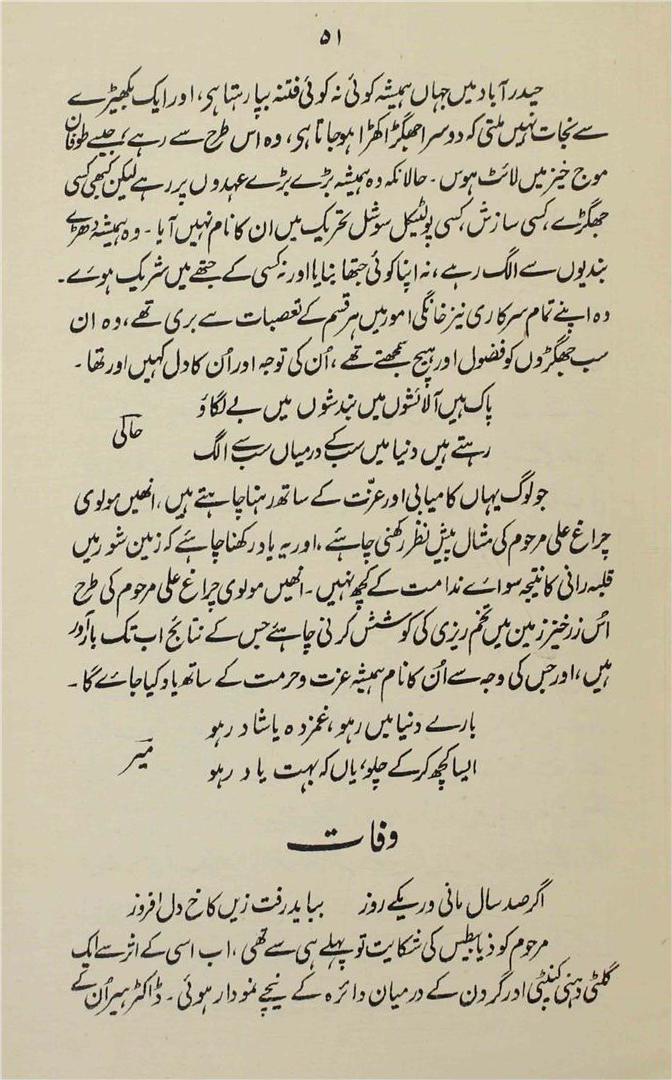 ۵۱
حیدرآباد میں جہاں ہمیشہ کوئی نہ کوئی فتنہ بپا رہتا ہی، اور ایک بکھیڑے
سے نجات نہیں ملتی کہ دوسرا جھگڑا کھڑا ہوجاتا ہی، وہ اس طرح سے رہے، جیسے طوفان
موج خیز میں لائٹ ہوس۔ حالانکہ وہ ہمیشہ بڑے بڑے عہدوں پر رہے لیکن کبھی کسی
جھگڑے، کسی سازش، کسی پولٹیکل سوشل تحریک میں ان کا نام نہیں آیا۔ وہ ہمیشہ دھڑے
بندیوں سے الگ رہے، نہ اپنا کوئی جتھا بنایا اور نہ کسی کے جتھے میں شریک ہوے۔
وہ اپنے تمام سرکاری نیز خانگی امور میں ہر قسم کے تعصبات سے بری تھے، وہ ان
سب جھگڑوں کو فضول اور ہیچ سمجھتے تھے، اُن کی توجہ اور اُن کا دل کہیں اور تھا۔
پاک ہیں آلائشوں میں بندشوں میں بے لگاؤ
رہتے ہیں دنیا میں سب کے درمیاں سب سے الگ
حالی
جو لوگ یہاں کامیابی اور عزّت کے ساتھ رہنا چاہتے ہیں، انھیں مولوی
چراغ علی مرحوم کی مثال پیش نظر رکھنی چاہئے، اور یہ یاد رکھنا چاہئے کہ زمین شور میں
قلبہ رانی کا نتیجہ سواے ندامت کے کچھ نہیں۔ انھیں مولوی چراغ علی مرحوم کی طرح
اُس زرخیز زمین میں تخم ریزی کی کوشش کرنی چاہئے جس کے نتائج اب تک بارآور
ہیں، اور جس کی وجہ سے اُن کا نام ہمیشہ عزت و حرمت کے ساتھ یاد کیا جاے گا۔
بارے دنیا میں رہو، غمزدہ یا شاد رہو
ایسا کچھ کرکے چلو، یاں کہ بہت یاد رہو
میر
وفات
اگر صد سال مانی ور یکے روز بباید رفت زیں کاخ دل افروز
مرحوم کو ذیابطیس کی شکایت تو پہلے ہی سے تھی، اب اسی کے اثر سے ایک
گلٹی دہنی کنپٹی اور گردن کے درمیان دائرہ کے نیچے نمودار ہوئی۔ ڈاکٹر ہیر اُن کے